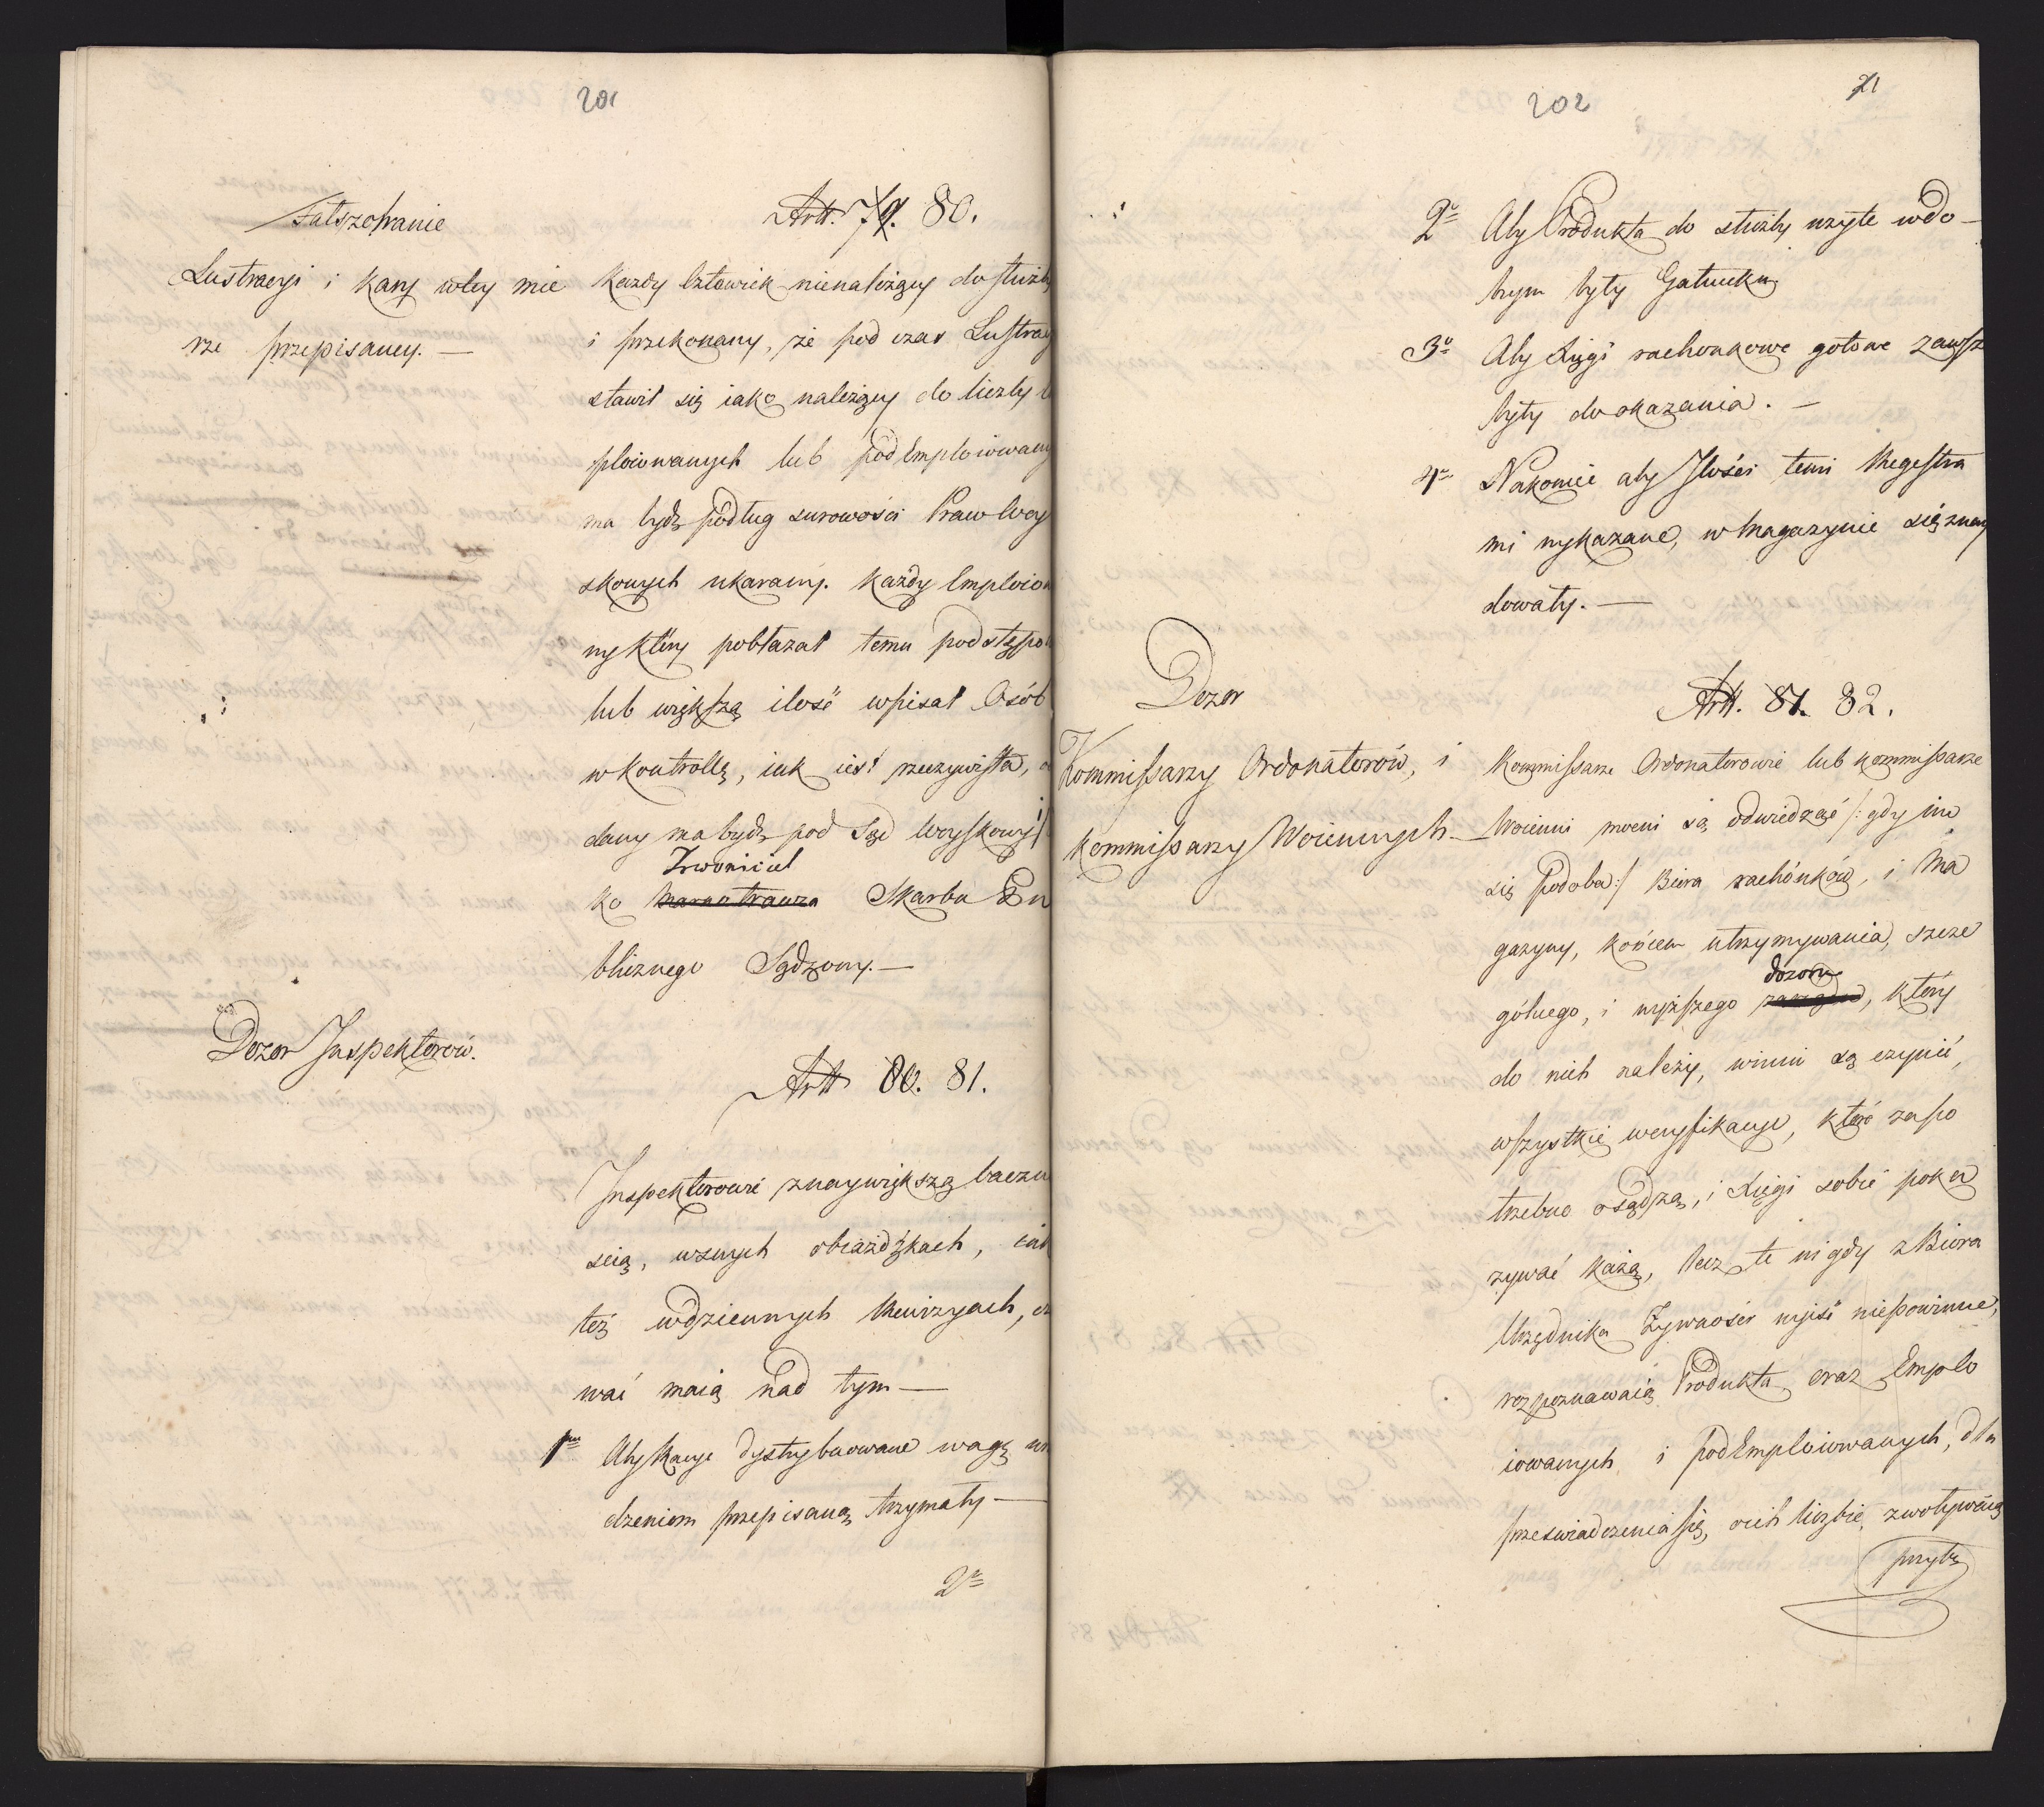 201
Fałszowanie
Lustracyi i kary wtey mie
rze przepisaney. —
Artt. 79. 80.
Każdy Człowiek nienależący do służby
i przekonany, że pod czas Lustracy
stawił się iako należący do liczby
ploiowanych lub podEmploiowany
ma bydź podług surowości Praw Woy
skowych ukarany. Każdy Emploio
ny który pobłażał temu podstępo
lub większą ilość wpisał Osób
w kontrollę, iak iest rzeczywista,
dany ma bydź pod Sąd Woyskowy
Trwoniciel
ko marnotrawca Skarbu Pu
blicznego Sądzony. —
Dozor Inspektorów.
Artt 80. 81.
Inspektorowie znaywiększą baczno
scią, wswych obiazdżkach, iak
też wdziennych Rewizyach,
wać maią nad tym —
1mo Aby Racye dystrybuowane wagę
dzeniem przepisaną trzymały —
2o
202
21
2o Aby Produkta do służby użyte wdo-
brym były Gatunku
3o Aby Xięgi rachonkowe gotowe zawsz
były do okazania. —
4o Nakoniec aby Ilości temi Regestra
mi wykazane, w Magazynie się znay
dowały. —
Dozor
Kommissarzy Ordonatorów, i
Kommissarzy Woiennych —
Artt. 81. 82.
Kommissarze Ordonatorowie lub Kommissarze
Woienni mocni są odwiedzać /: gdy im
się Podoba :/ Biora rachónków, i Ma
gazyny, końcem utrzymywania, szcze
dozoru
gólnego, i wyższego zarządu, który
do nich należy, winni są czynić,
wszystkie weryfikacye, które za po
trzebne osądzą, i Xięgi sobie poka
zywać każą, lecz te nigdy z Biora
Urzędnika Żywności wyiść niepowinne,
rozpoznawaią Produkta, oraz Emplo
iowanych i podEmploiowanych, dla
przeswiadczenia się, o ich liczbie, zwoływaią
przytę